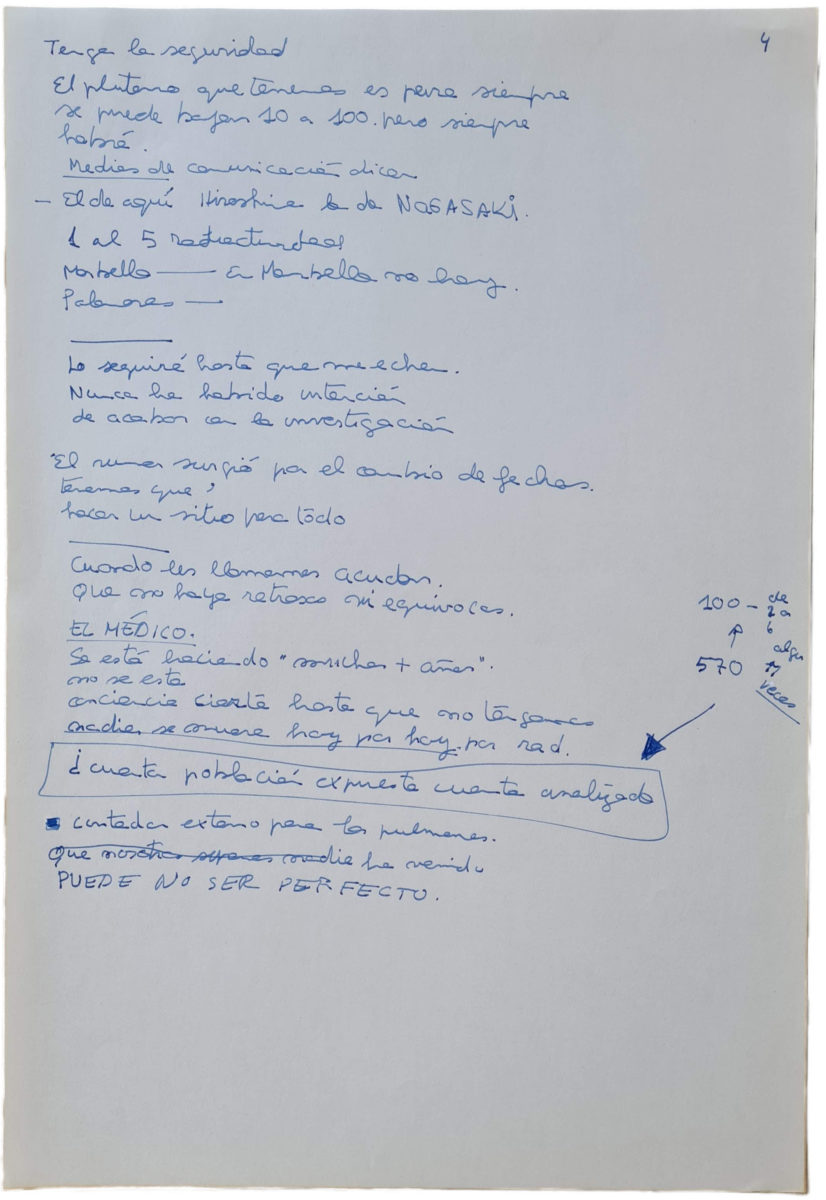 4
Tenga la seguridad
El plutonio que tenemos es para siempre
se puede bajar 10 a 100. pero siempre
habrá.
Medios de comunicación dicen
- El de aquí Hiroshima la de NAGASAKI.
1 al 5
Marbella — En Marbella no hay.
Palomares —
Lo seguiré hasta que me echen.
Nunca ha habido intención
de acabar con la investigación
El rumor surgió por el cambio de fechas.
tenemos que
hacer un sitio para todo
Cuando les llamemos acudan.
Que no haya retraso ni equivocos.
EL MÉDICO.
Se está haciendo "muchos + años".
no se esta
conciencia cierta hasta que no tengamos
nadie se muere hoy por hoy por rad.
¿cuanta población expuesta cuanta analizada
contador externo para los pulmones.
Que nosotros sepamos nadie ha venido
PUEDE NO SER PERFECTO.
100 - de
2 a
6
570
veces